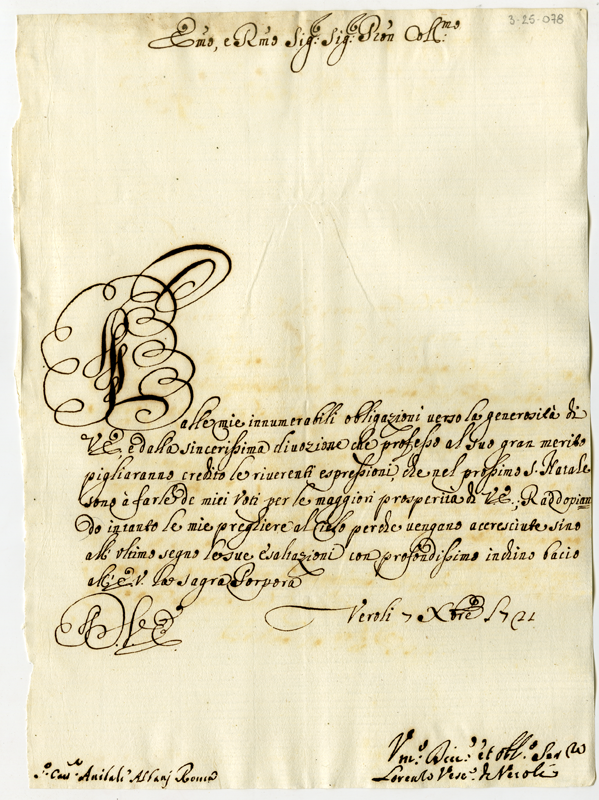 3-25-078
Emo, e Rmo Sig: Sig: Pron Colmo
Dalle mie innumerabili obligazioni verso la generosità di
V.E. e dalla sincerissima divozione che professo al suo gran merito
pigliaranno credito le riverenti espressioni, che nel prossimo S. Natale
sono à farle de miei Voti per le maggiori prosperità di V.E.; Raddopian
do intanto le mie pregliere al Cielo perche vengano accresciute sino
all' ultimo segno le sue esaltazioni con profondissimo inchino bacio
all' E.V. la sagra Porpora
Di V.E.
Veroli 7 Xbre 1721
Vmo: Divmo: et oblo: Ser
Sr Card Anibale Albani Roma
Lorenzo Vesco di Veroli